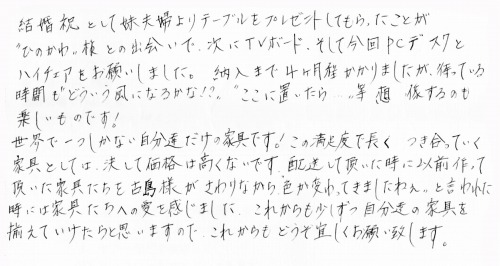 結婚祝として妹夫婦よりテーブルをプレゼントしてもらったことが
"ひのかわ"様との出会いで、次にTVボード、そして今回PCデスクと
ハイチェアをお願いしました。納入まで4ヶ月程かかりましたが、待っている
時間も"どういう風になるかな!?。"ここに置いたら…。"等 想像するのも
楽しいものです!
世界で一つしかない自分達だけの家具です!この満足度で長く つき合っていく
家具としては、決して価格は高くないです。配送して頂いた時に以前作って
頂いた家具たちを古島様が さわりながら"色が変わってきましたねぇ。"と言われた
時には家具たちへの愛を感じました。これからも少しずつ自分達の家具を
揃えていけたらと思いますので、これからも どうぞ宜しくお願い致します。